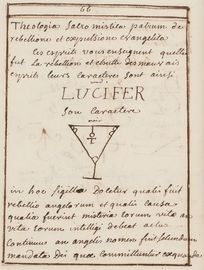 66
Theologia Sacro mistica patrum de
rebellione et expulsione evangelica
Ces esprits vous enseignent quelle
fut la rebellion et chutte des mauvais
esprits leurs caracteres sont ainsi
LUCIFER
Son Caractere
in hoc sigillo Docetur qualis fuit
rebellio angelorum et qualis causa
qualia fuerint misteria eorum vita
vita eorum intelligi debeat
Continuus an angelis nomen fuit
mandata Dei quae committuntur